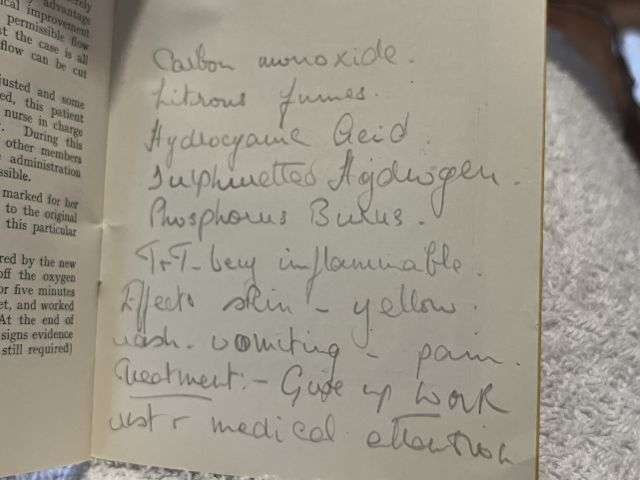 advantage
cal improvement
permissible flow
t the case is all
flow can be cut
justed and some
ed, this patient
nurse in charge
. During this
other members
administration
ssible.
marked for her
to the original
this particular
red by the new
off the oxygen
or five minutes
et, and worked
At the end of
signs evidence
still required)
Carbon monoxide.
Nitrous fumes.
Hydrocyanic Acid.
Sulphuretted Hydrogen.
Phosphorus Burns.
T.N.T. - very inflammable.
Effects skin - yellow.
rash - vomiting - pain.
Treatment: - Give up work
rest & medical attention